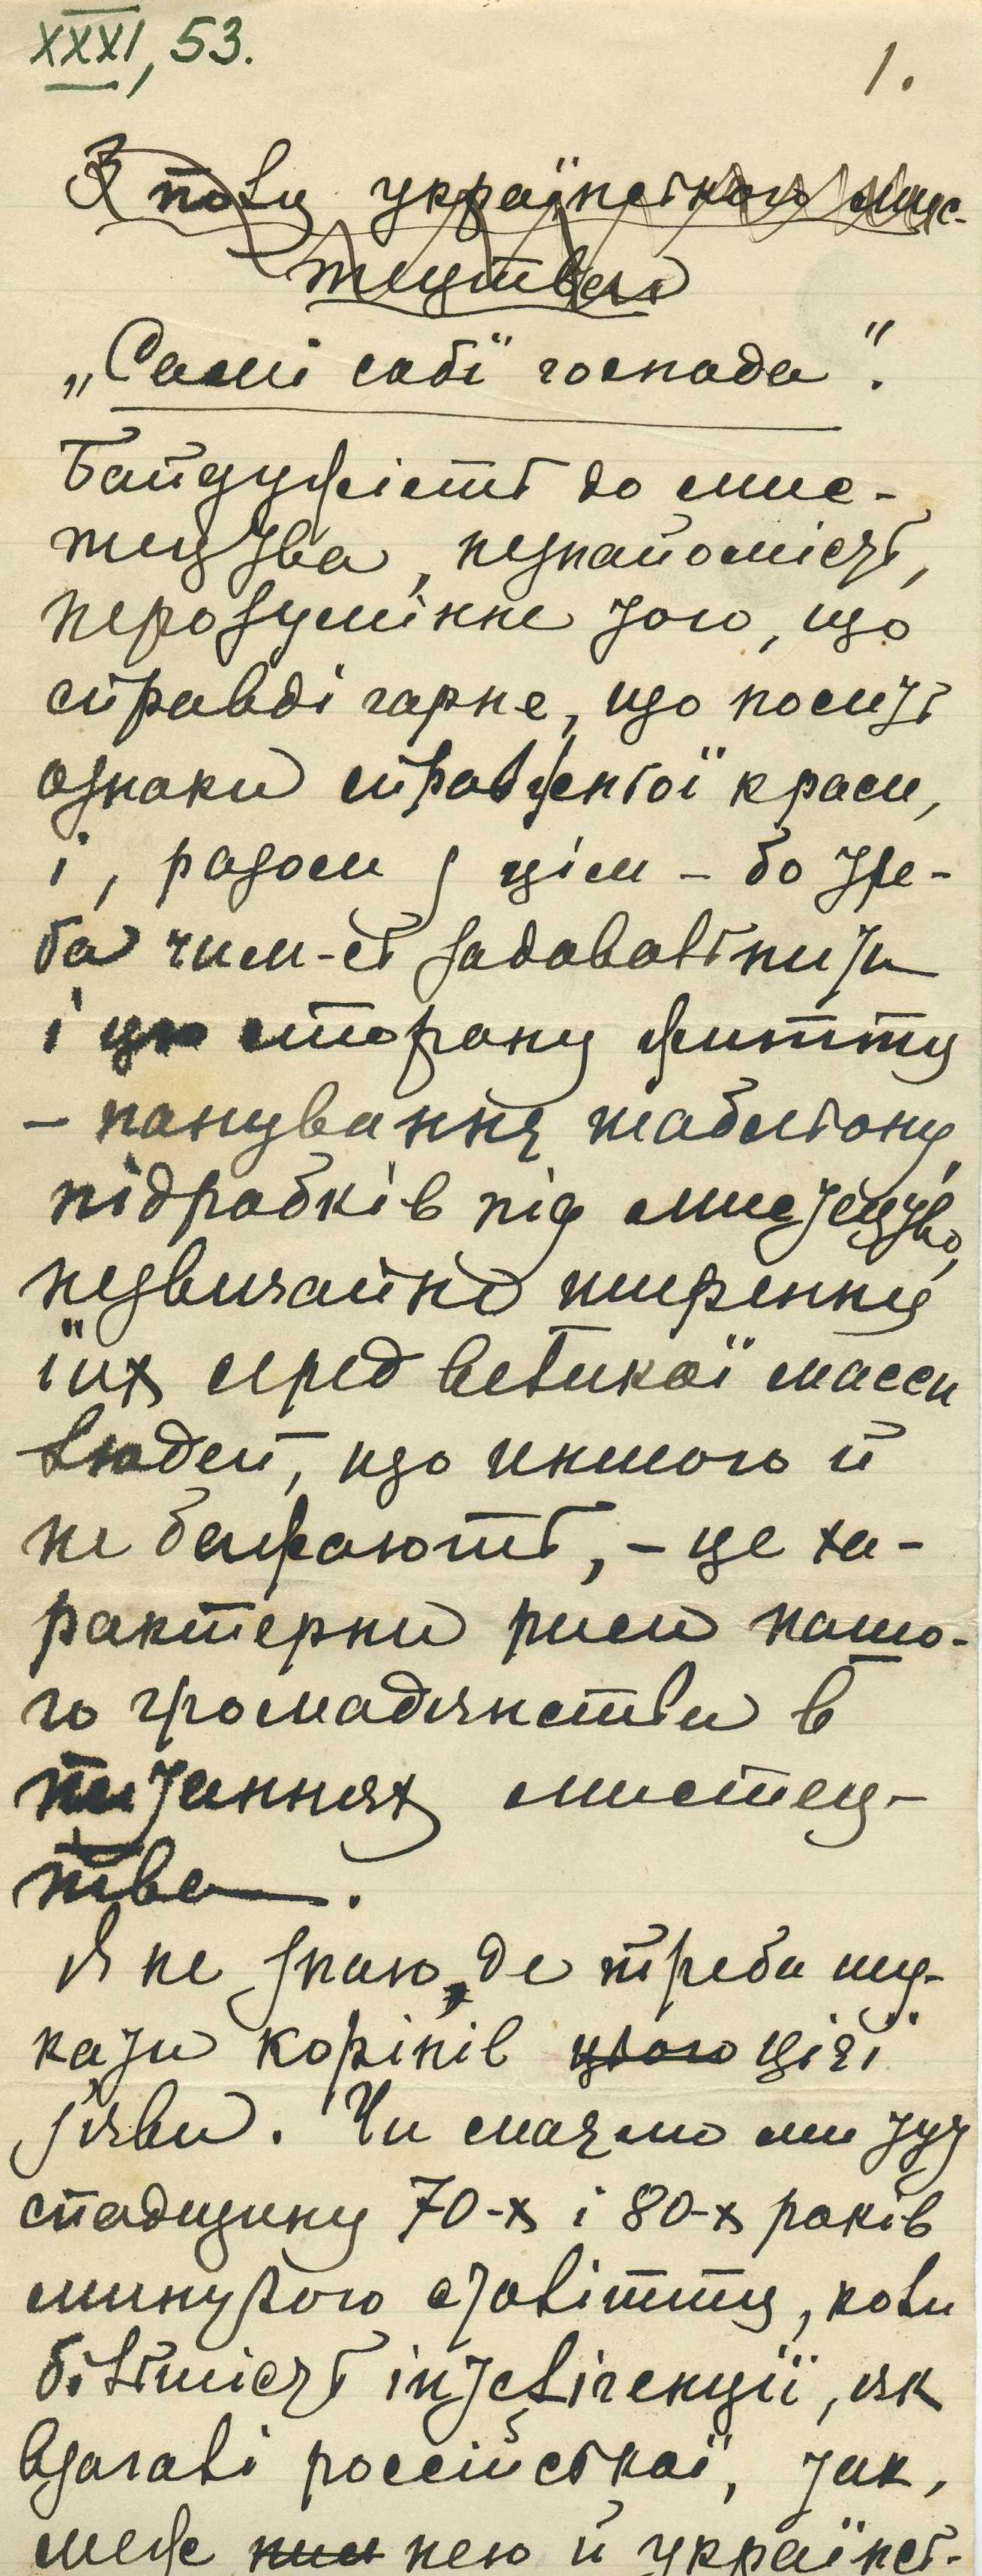 XXXI, 53.
1.
З поля українського мис-
тецтва
„Самі собі господа“.
Байдужість до мис-
тецтва, незнайомість,
нерозуміннє того, що
справді гарне, що носить
ознаки справжньої краси,
і, разом з цім – бо тре-
ба чим-сь задовольнити
і цю сторону життя
– панування шабльону,
підробків під мистецтво,
незвичайно ширення
їих серед великої масси
людей, що иншого й
не бажають, – це ха-
рактерни риси нашо-
го громадянства в
питаннях мистец-
тва.
Я не знаю, де треба шу-
кати корінів цього ціеї
з'яви. Чи маємо ми тут
спадщину 70-х і 80-х років
минулого століття, коли
більшість інтелігенції, як
взагалі россійської, так,
меж ним нею й українсь-